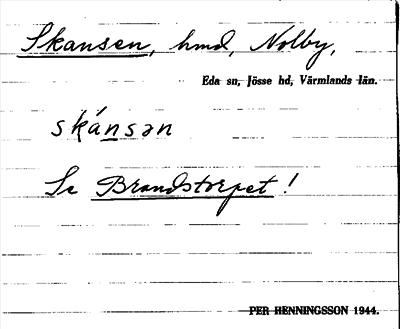 Skansen, hmd, Nolby,
Eda sn, Jösse hd, Värmlands län.
skánsən
Se Brandstorpet!
PER HENNINGSSON 1944.